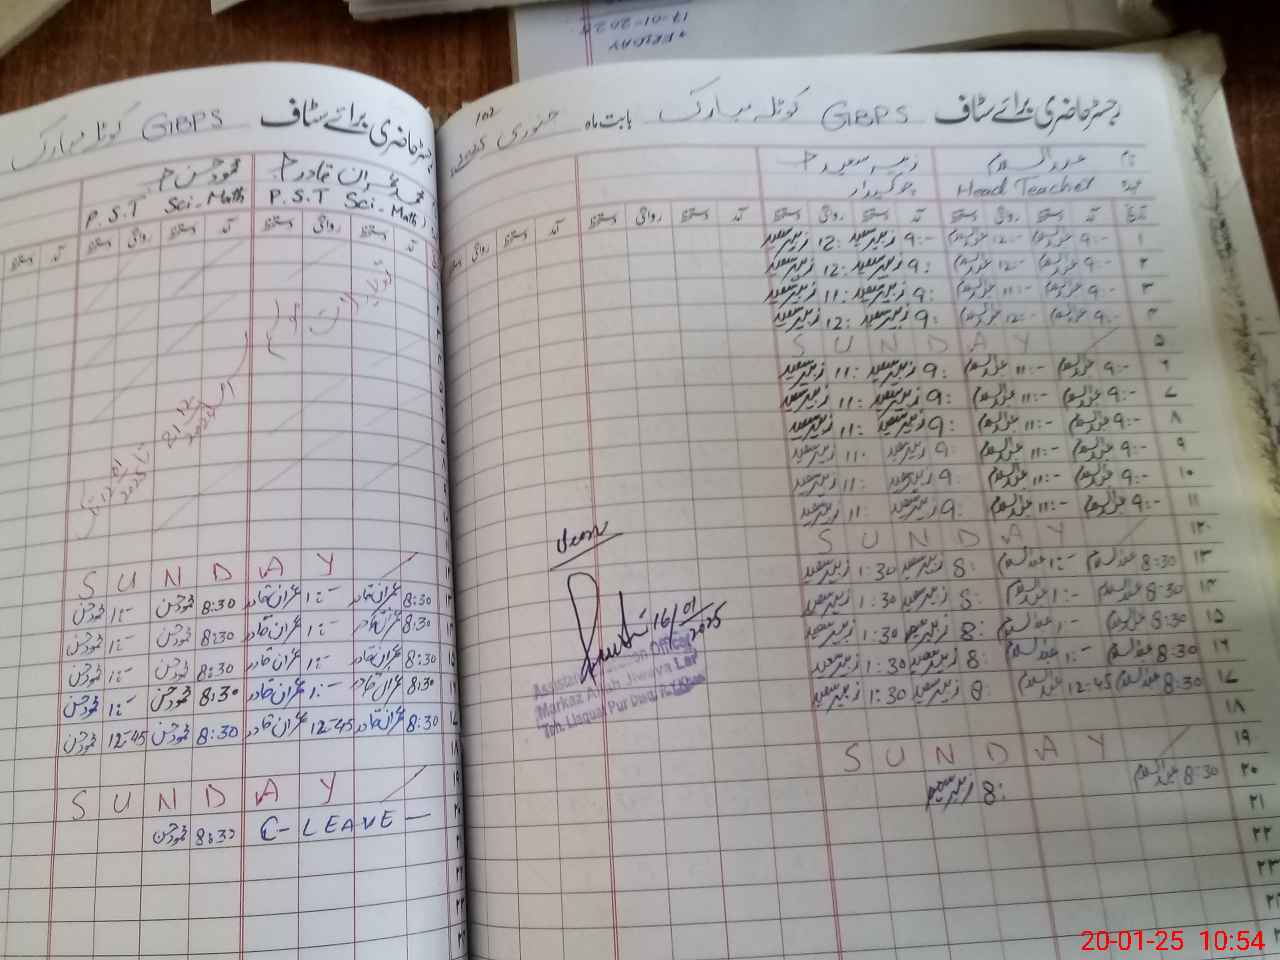 رجسٹر حاضری برائے سٹاف GBPS کوٹلہ مبارک بابت ماہ جنوری 2025ء
102
نام عبدالسلام زبیر سعید
عہدہ Head Teacher چوکیدار
تاریخ آمد دستخط روانگی دستخط آمد دستخط روانگی دستخط آمد دستخط روانگی دستخط آمد دستخط
۱ 9:- عبدالسلام 12:- عبدالسلام 9:- زبیر سعید 12: زبیر سعید
۲ 9:- عبدالسلام 12:- عبدالسلام 9: زبیر سعید 12: زبیر سعید
۳ 9:- عبدالسلام 11:- عبدالسلام 9: زبیر سعید 11: زبیر سعید
۴ 9:- عبدالسلام 12:- عبدالسلام 9: زبیر سعید 12: زبیر سعید
۵ SUNDAY
۶ 9:- عبدالسلام 11:- عبدالسلام 9: زبیر سعید 11: زبیر سعید
۷ 9:- عبدالسلام 11:- عبدالسلام 9: زبیر سعید 11: زبیر سعید
۸ 9:- عبدالسلام 11:- عبدالسلام 9: زبیر سعید 11: زبیر سعید
۹ 9:- عبدالسلام 11:- عبدالسلام 9: زبیر سعید 11: زبیر سعید
۱۰ 9:- عبدالسلام 11:- عبدالسلام 9: زبیر سعید 11: زبیر سعید
۱۱ 9:- عبدالسلام 11:- عبدالسلام 9: زبیر سعید 11: زبیر سعید
۱۲ SUNDAY
۱۳ 8:30 عبدالسلام 1:- عبدالسلام 8: زبیر سعید 1:30 زبیر سعید
۱۴ 8:30 عبدالسلام 1:- عبدالسلام 8: زبیر سعید 1:30 زبیر سعید
۱۵ 8:30 عبدالسلام 1:- عبدالسلام 8: زبیر سعید 1:30 زبیر سعید
۱۶ 8:30 عبدالسلام 1:- عبدالسلام 8: زبیر سعید 1:30 زبیر سعید
۱۷ 8:30 عبدالسلام 12:45 عبدالسلام 8: زبیر سعید 1:30 زبیر سعید
۱۸
۱۹ SUNDAY
۲۰ 8:30 عبدالسلام 8: زبیر سعید
۲۱
۲۲
۲۳
Seen
16/01/2025
Officer
Markaz
Teh. Liaquat Pur
رجسٹر حاضری برائے سٹاف GBPS کوٹلہ مبارک
محمد عمران قادر محمود حسن
P.S.T Sci-Math P.S.T Sci-Math
آمد دستخط روانگی دستخط آمد دستخط روانگی دستخط آمد دستخط
2024
2025
SUNDAY
8:30 عمران قادر 1:- عمران قادر 8:30 محمود حسن 1:- محمود حسن
8:30 عمران قادر 1:- عمران قادر 8:30 محمود حسن 1:- محمود حسن
8:30 عمران قادر 1:- عمران قادر 8:30 محمود حسن 1:- محمود حسن
8:30 عمران قادر 1:- عمران قادر 8:30 محمود حسن 1:- محمود حسن
8:30 عمران قادر 12:45 عمران قادر 8:30 محمود حسن 12:45 محمود حسن
SUNDAY
C-LEAVE 8:30 محمود حسن
FRIDAY
17-01-2025
20-01-25 10:54